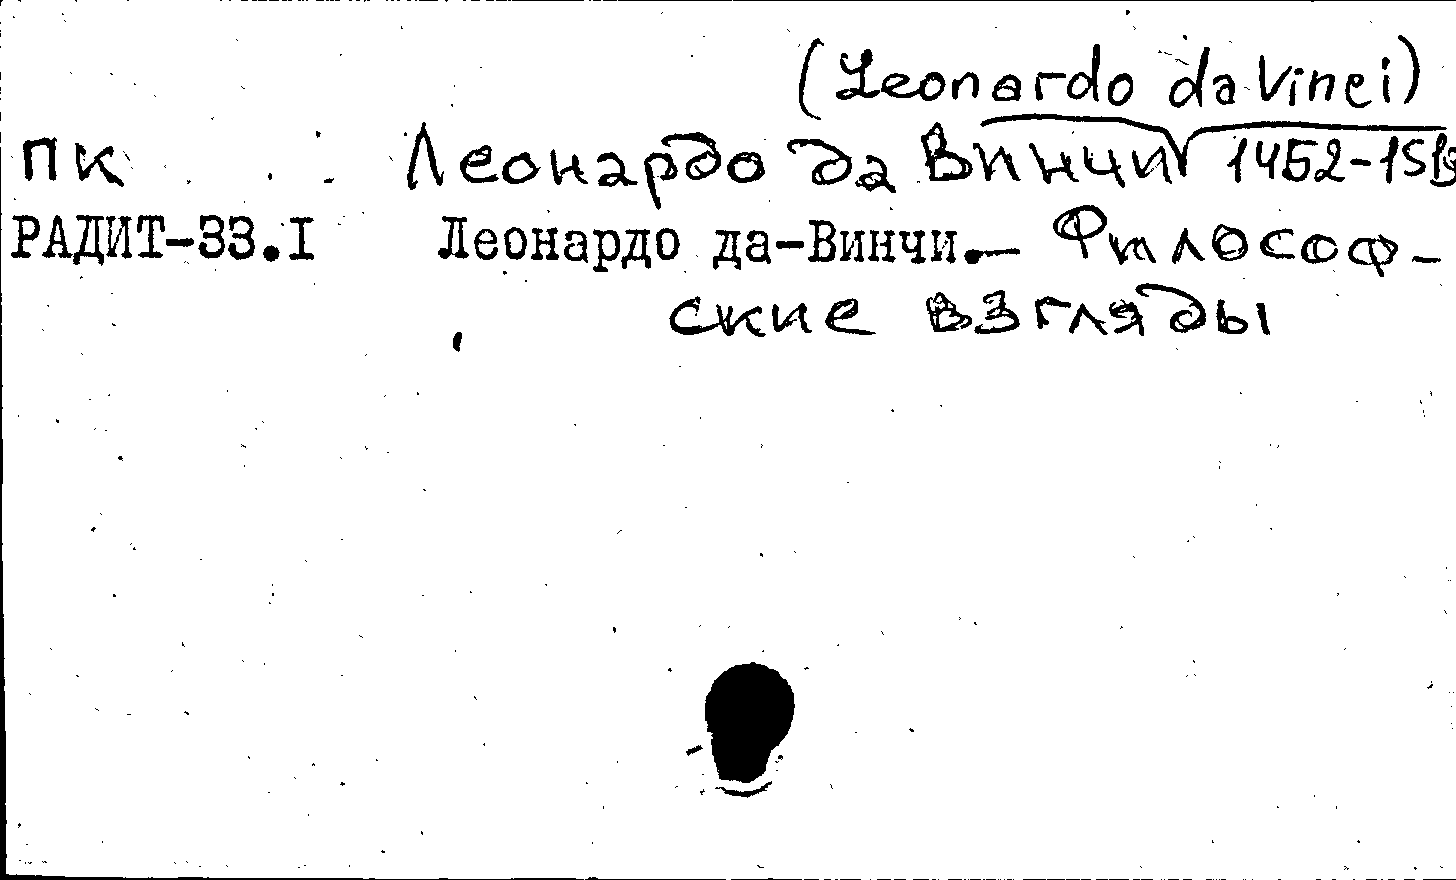 (Leonardo da Vinci)
ПК Леонардо да Винчи 1452-151
РАДИТ-33.I Леонардо да-Винчи.— Философ-
ские взгляды